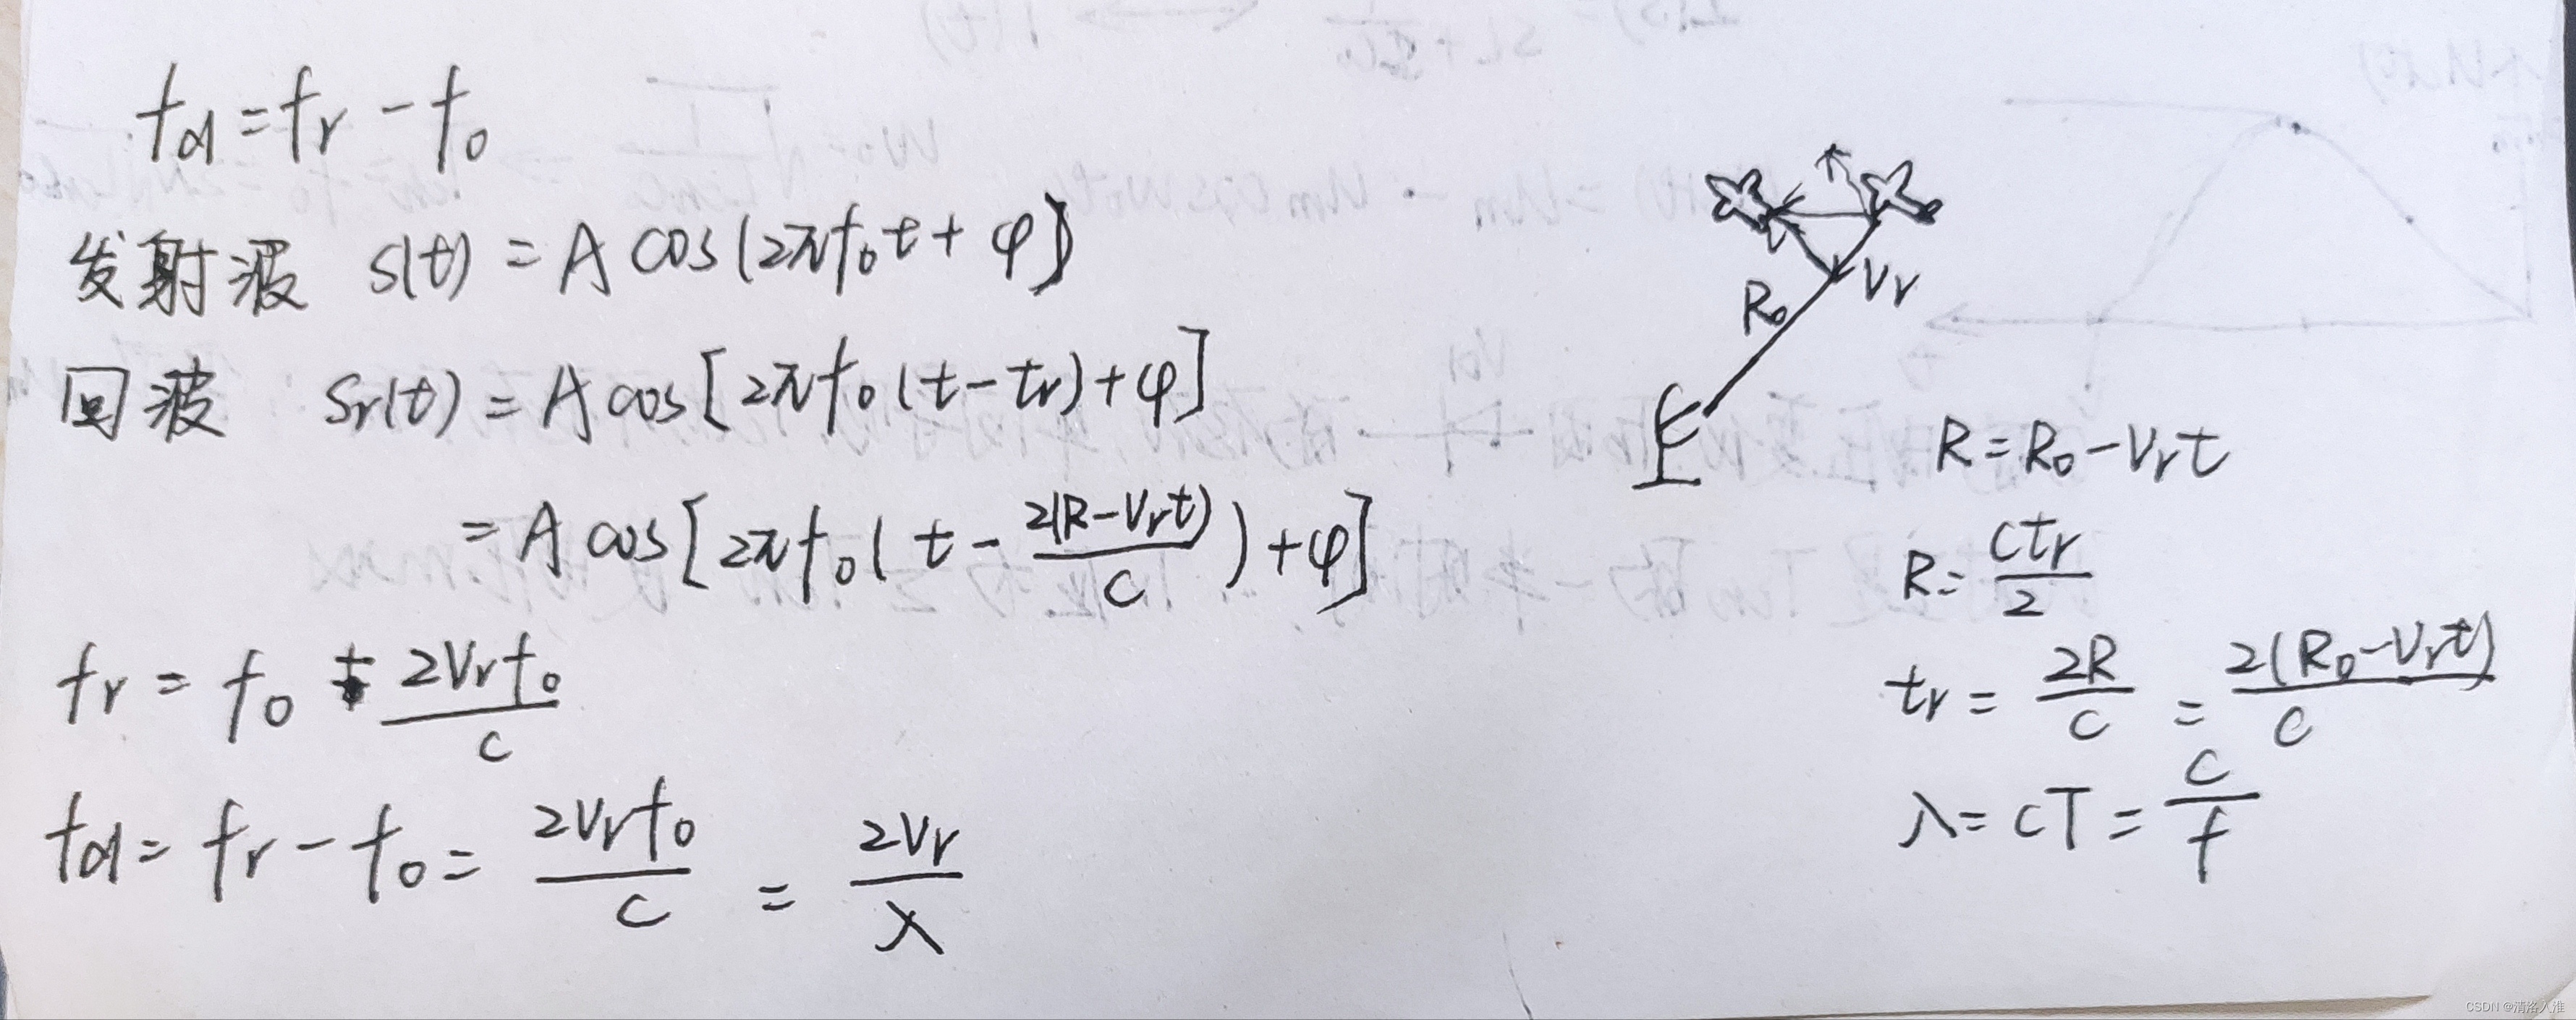 fd = fr - f0
发射波 S(t) = A cos(2πf0t + φ)
回波 Sr(t) = A cos[2πf0(t - tr) + φ]
= A cos[2πf0(t - 2(R - Vrt)/C) + φ]
fr = f0 + 2Vrf0/C
fd = fr - f0 = 2Vrf0/C = 2Vr/λ
R0
Vr
R = R0 - Vrt
R = Ctr/2
tr = 2R/C = 2(R0 - Vrt)/C
λ = CT = C/f
CSDN @清洛入淮